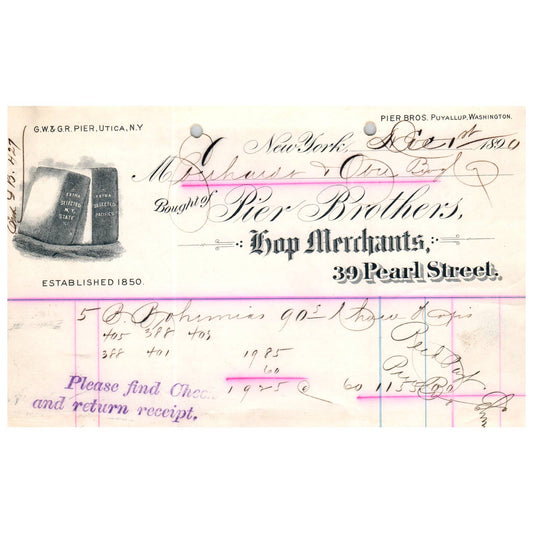 G.W. & G.R. PIER, UTICA, N.Y
PIER BROS. PUYALLUP, WASHINGTON.
New York, Dec 1st 1890
EXTRA SELECTED N.Y. STATE
EXTRA SELECTED PACIFICS
M
Bought of Pier Brothers,
Hop Merchants,
39 Pearl Street.
ESTABLISHED 1850.
5 B Bohemias 90s
405 388 403
388 401 1985
60
1925 @ 60 1155
Please find Chec
and return receipt.